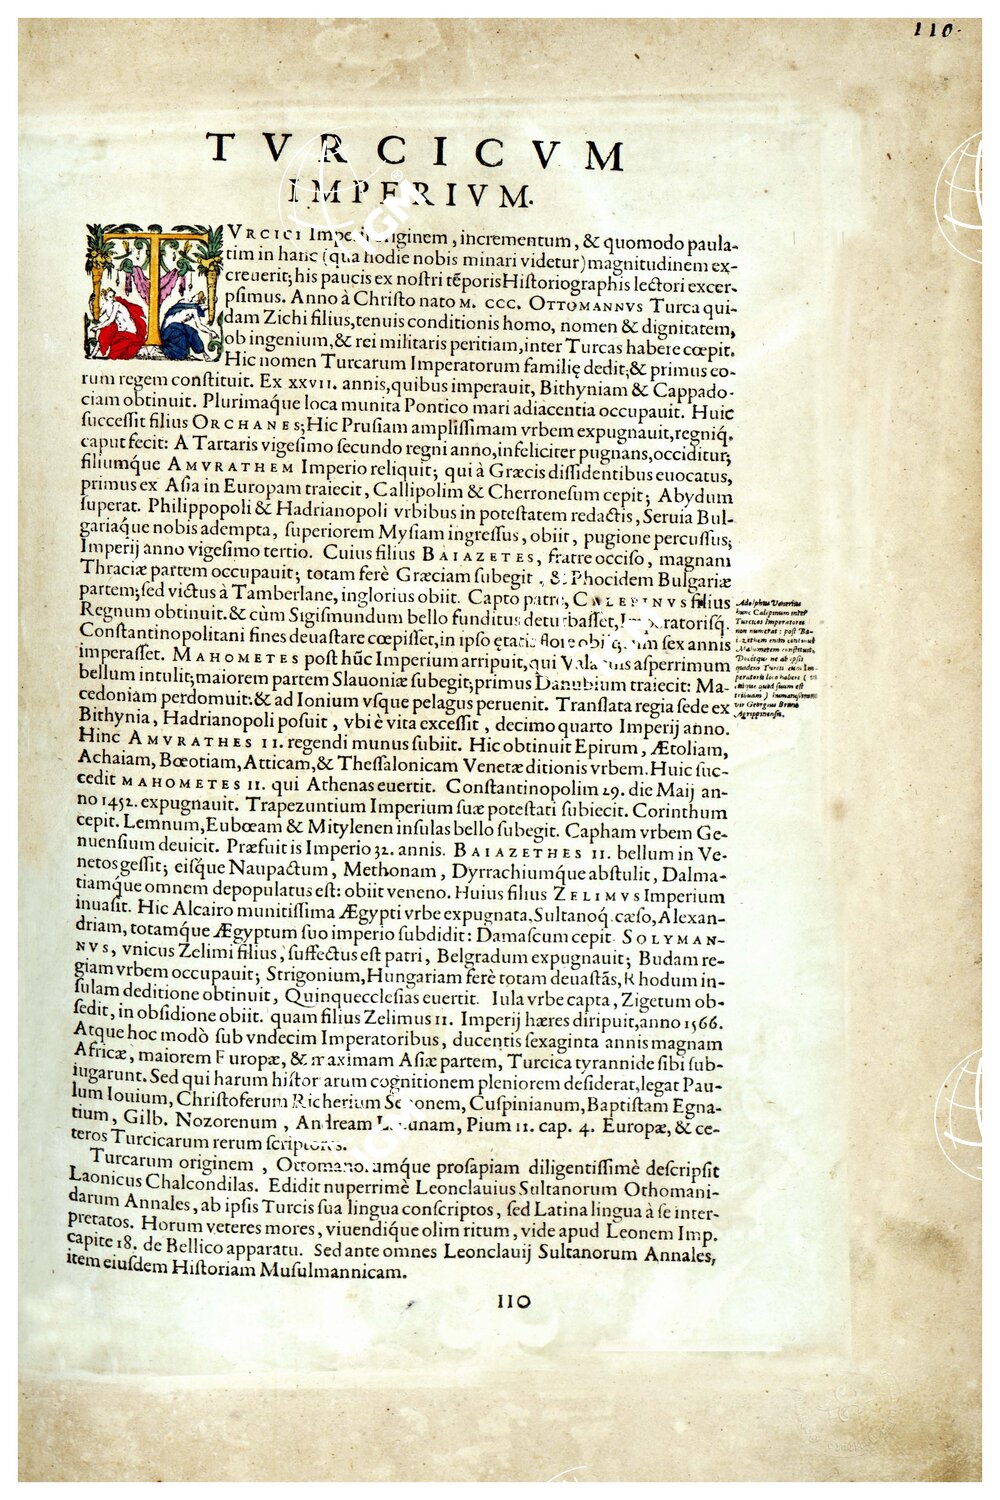 110.
TVRCICVM
IMPERIVM.
TVRCICI Imperij originem, incrementum, & quomodo paula-
tim in hanc (quа hodie nobis minari videtur) magnitudinem ex-
creuerit; his paucis ex nostri tēporis Historiographis lectori excer-
psimus. Anno à Christo nato M. CCC. OTTOMANNVS Turca qui-
dam Zichi filius, tenuis conditionis homo, nomen & dignitatem,
ob ingenium, & rei militaris peritiam, inter Turcas habere cœpit.
Hic nomen Turcarum Imperatorum familię dedit; & primus eo-
rum regem constituit. Ex XXVII. annis, quibus imperauit, Bithyniam & Cappado-
ciam obtinuit. Plurimaq́ue loca munita Pontico mari adiacentia occupauit. Huic
successit filius ORCHANES; Hic Prusiam amplissimam vrbem expugnauit, regniq́.
caput fecit: A Tartaris vigesimo secundo regni anno, infeliciter pugnans, occiditur;
filiumq́ue AMVRATHEM Imperio reliquit; qui à Græcis dissidentibus euocatus,
primus ex Asia in Europam traiecit, Callipolim & Cherronesum cepit; Abydum
superat. Philippopoli & Hadrianopoli vrbibus in potestatem redactis, Seruia Bul-
gariaq́ue nobis adempta, superiorem Mysiam ingressus, obiit, pugione percussus;
Imperij anno vigesimo tertio. Cuius filius BAIAZETES, fratre occiso, magnam
Thraciæ partem occupauit; totam ferè Græciam subegit, & Phocidem Bulgariæ
partem; sed victus à Tamberlane, inglorius obiit. Capto patre, CALEPINVS filius
Regnum obtinuit. & cùm Sigismundum bello funditus deturbasset, Imperatorisq́.
Constantinopolitani fines deuastare cœpisset, in ipso ętatis flore obiit, cùm sex annis
imperasset. MAHOMETES post hūc Imperium arripuit, qui Valachis asperrimum
bellum intulit; maiorem partem Slauoniæ subegit; primus Danubium traiecit: Ma-
cedoniam perdomuit: & ad Ionium vsque pelagus peruenit. Translata regia sede ex
Bithynia, Hadrianopoli posuit, vbi è vita excessit, decimo quarto Imperij anno.
Hinc AMVRATHES II. regendi munus subiit. Hic obtinuit Epirum, Ætoliam,
Achaiam, Bœotiam, Atticam, & Thessalonicam Venetæ ditionis vrbem. Huic suc-
cedit MAHOMETES II. qui Athenas euertit. Constantinopolim 29. die Maij an-
no 1452. expugnauit. Trapezuntium Imperium suæ potestati subiecit. Corinthum
cepit. Lemnum, Eubœam & Mitylenen insulas bello subegit. Capham vrbem Ge-
nuensium deuicit. Præfuit is Imperio 32. annis. BAIAZETHES II. bellum in Ve-
netos gessit; eisq́ue Naupactum, Methonam, Dyrrachiumq́ue abstulit, Dalma-
tiamq́ue omnem depopulatus est: obiit veneno. Huius filius ZELIMVS Imperium
inuasit. Hic Alcairo munitissima Ægypti vrbe expugnata, Sultanoq́. cæso, Alexan-
driam, totamq́ue Ægyptum suo imperio subdidit: Damascum cepit. SOLYMAN-
NVS, vnicus Zelimi filius, suffectus est patri, Belgradum expugnauit; Budam re-
giam vrbem occupauit; Strigonium, Hungariam ferè totam deuastās, Rhodum in-
sulam deditione obtinuit, Quinquecclesias euertit. Iula vrbe capta, Zigetum ob-
sedit, in obsidione obiit. quam filius Zelimus II. Imperij hæres diripuit, anno 1566.
Atque hoc modò sub vndecim Imperatoribus, ducentis sexaginta annis magnam
Africæ, maiorem Europæ, & maximam Asiæ partem, Turcica tyrannide sibi sub-
iugarunt. Sed qui harum historiarum cognitionem pleniorem desiderat, legat Pau-
lum Iouium, Christoferum Richerium Senonem, Cuspinianum, Baptistam Egna-
tium, Gilb. Nozorenum, Andream Lacunam, Pium II. cap. 4. Europæ, & ce-
teros Turcicarum rerum scriptores.
Turcarum originem, Ottomanorumq́ue prosapiam diligentissimè descripsit
Laonicus Chalcondilas. Edidit nuperrimè Leonclauius Sultanorum Othomani-
darum Annales, ab ipsis Turcis sua lingua conscriptos, sed Latina lingua à se inter-
pretatos. Horum veteres mores, viuendiq́ue olim ritum, vide apud Leonem Imp.
capite 18. de Bellico apparatu. Sed ante omnes Leonclauij Sultanorum Annales,
item eiusdem Historiam Musulmannicam.
Adolphus Venerius
hunc Calepinum inter
Turcicos Imperatores
non numerat: post Ba-
iazethem enim continuò
Mahometem constituit.
Docetque ne ab ipsis
quidem Turcis eum Im-
peratoris loco haberi (vt
cuique quod suum est
tribuam) humanissimus
vir Georgius Bruno
Agrippinensis.
110